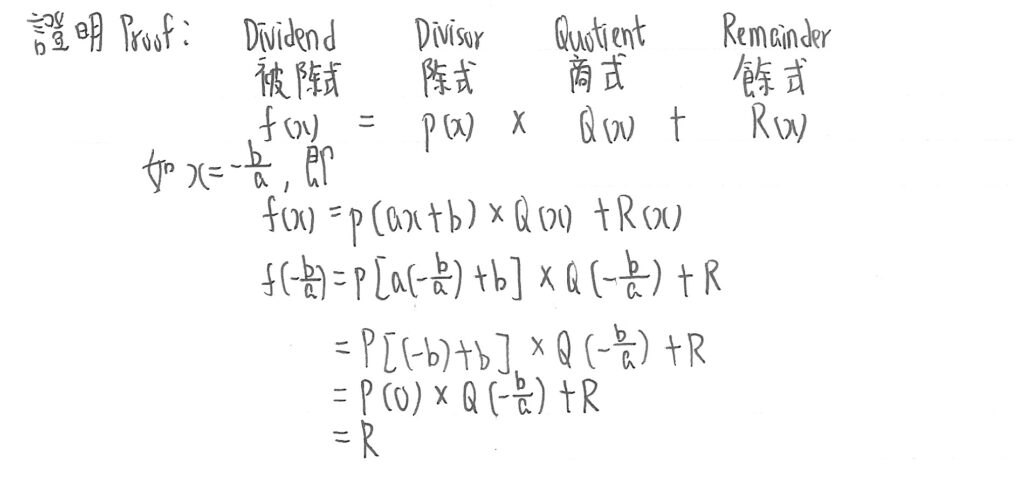 證明 Proof: Dividend Divisor Quotient Remainder
被除式 除式 商式 餘式
f(x) = p(x) × Q(x) + R(x)
如 x=-b/a, 即
f(x) = p(ax+b) × Q(x) + R(x)
f(-b/a) = P[a(-b/a)+b] × Q(-b/a) + R
= P[(-b)+b] × Q(-b/a) + R
= P(0) × Q(-b/a) + R
= R